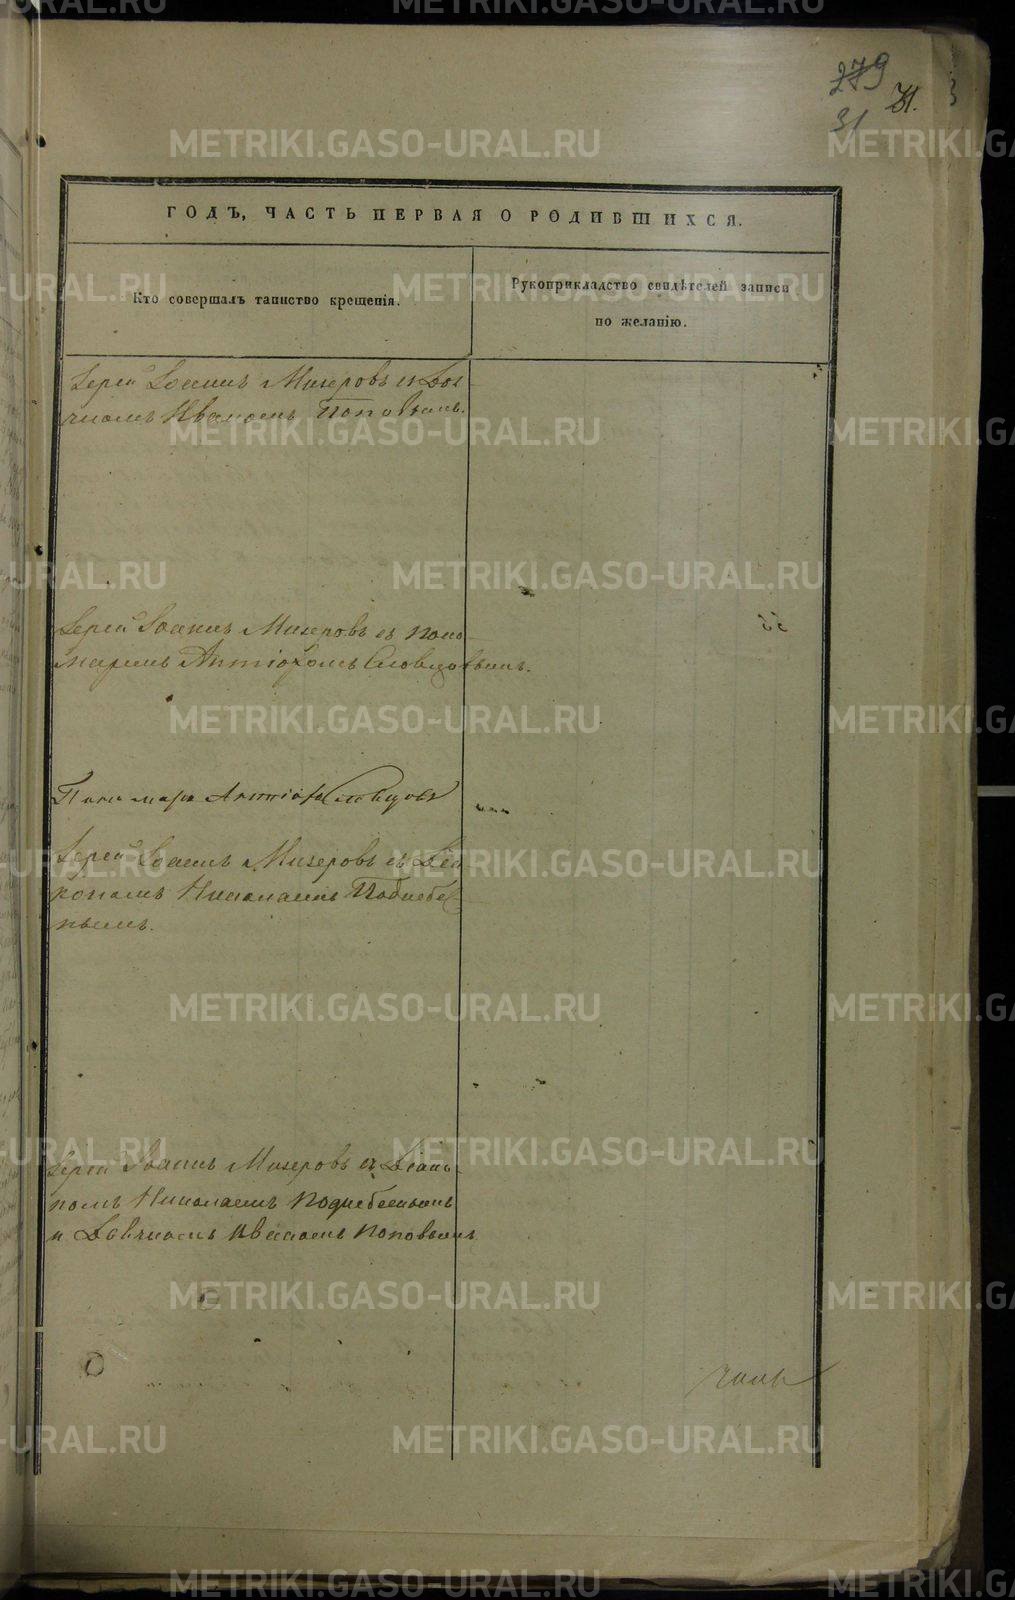 279
31
31.
ГОДЪ, ЧАСТЬ ПЕРВАЯ О РОДИВШИХСЯ.
Кто совершалъ таинство крещенія.
Рукоприкладство свидѣтелей записи
по желанію.
Іерей Іоаннъ Мизеровъ съ Дья
чкомъ Иваномъ Поповымъ.
Іерей Іоаннъ Мизеровъ съ Поно
маремъ Антіохомъ Словцовымъ.
Пономарь Антіохъ Словцовъ
Іерей Іоаннъ Мизеровъ съ Діа
кономъ Николаемъ Поднебес
нымъ.
Іерей Іоаннъ Мизеровъ съ Діако
номъ Николаемъ Поднебеснымъ
и Дьячкомъ Иваномъ Поповымъ
METRIKI.GASO-URAL.RU